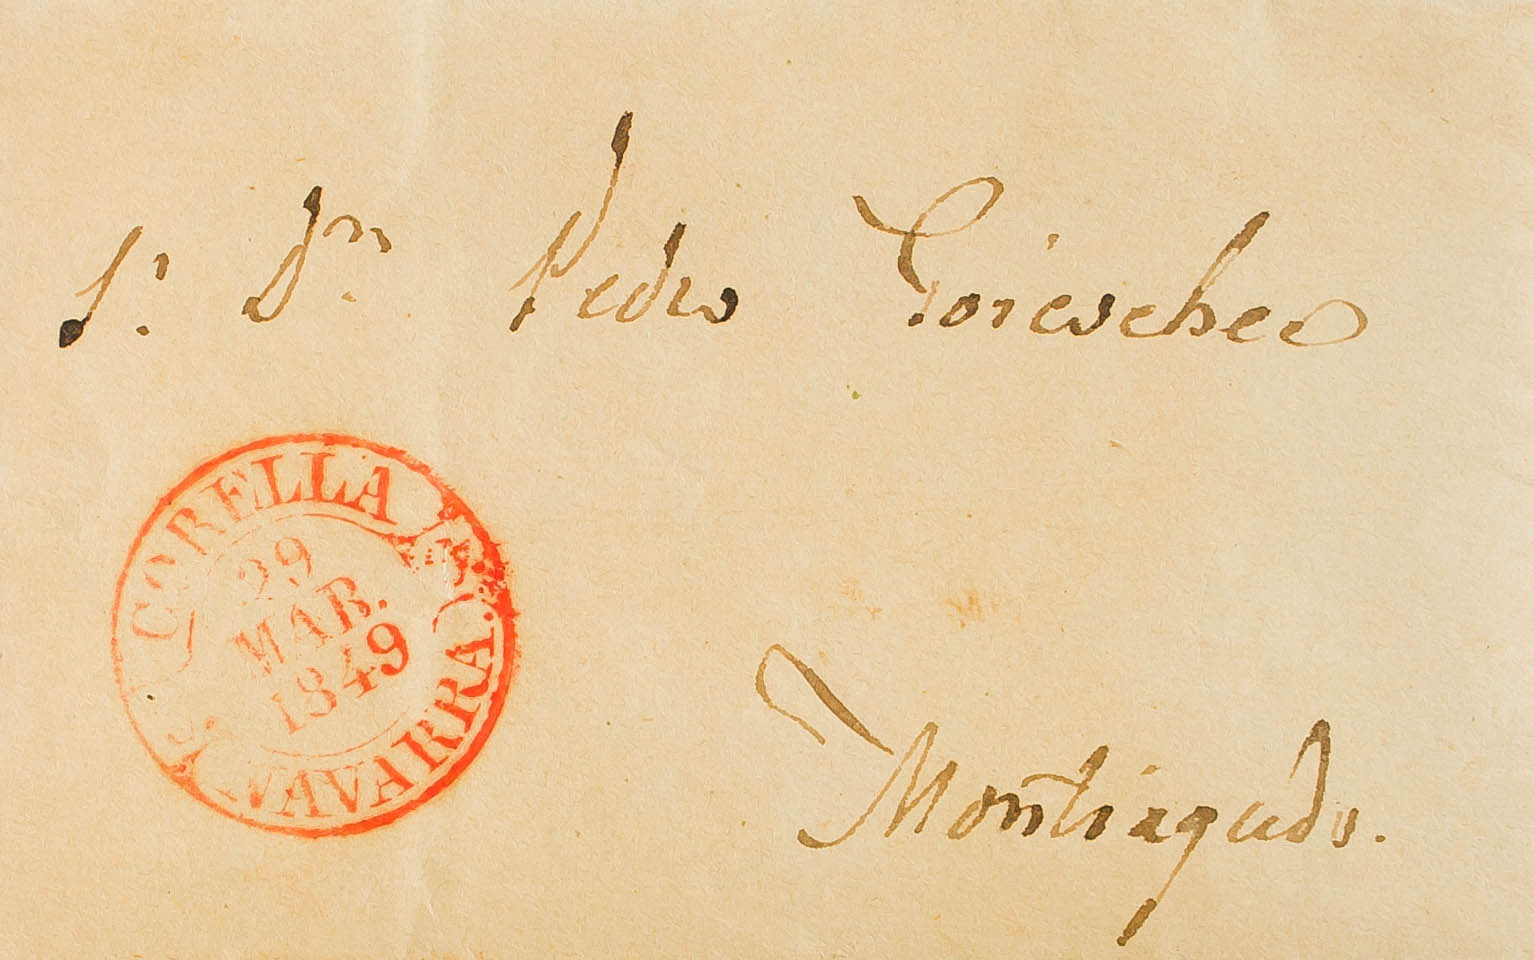 Sr. Dn. Pedro Goicochea
CORELLA
29
MAR.
1849
NAVARRA.
Montiagudo.